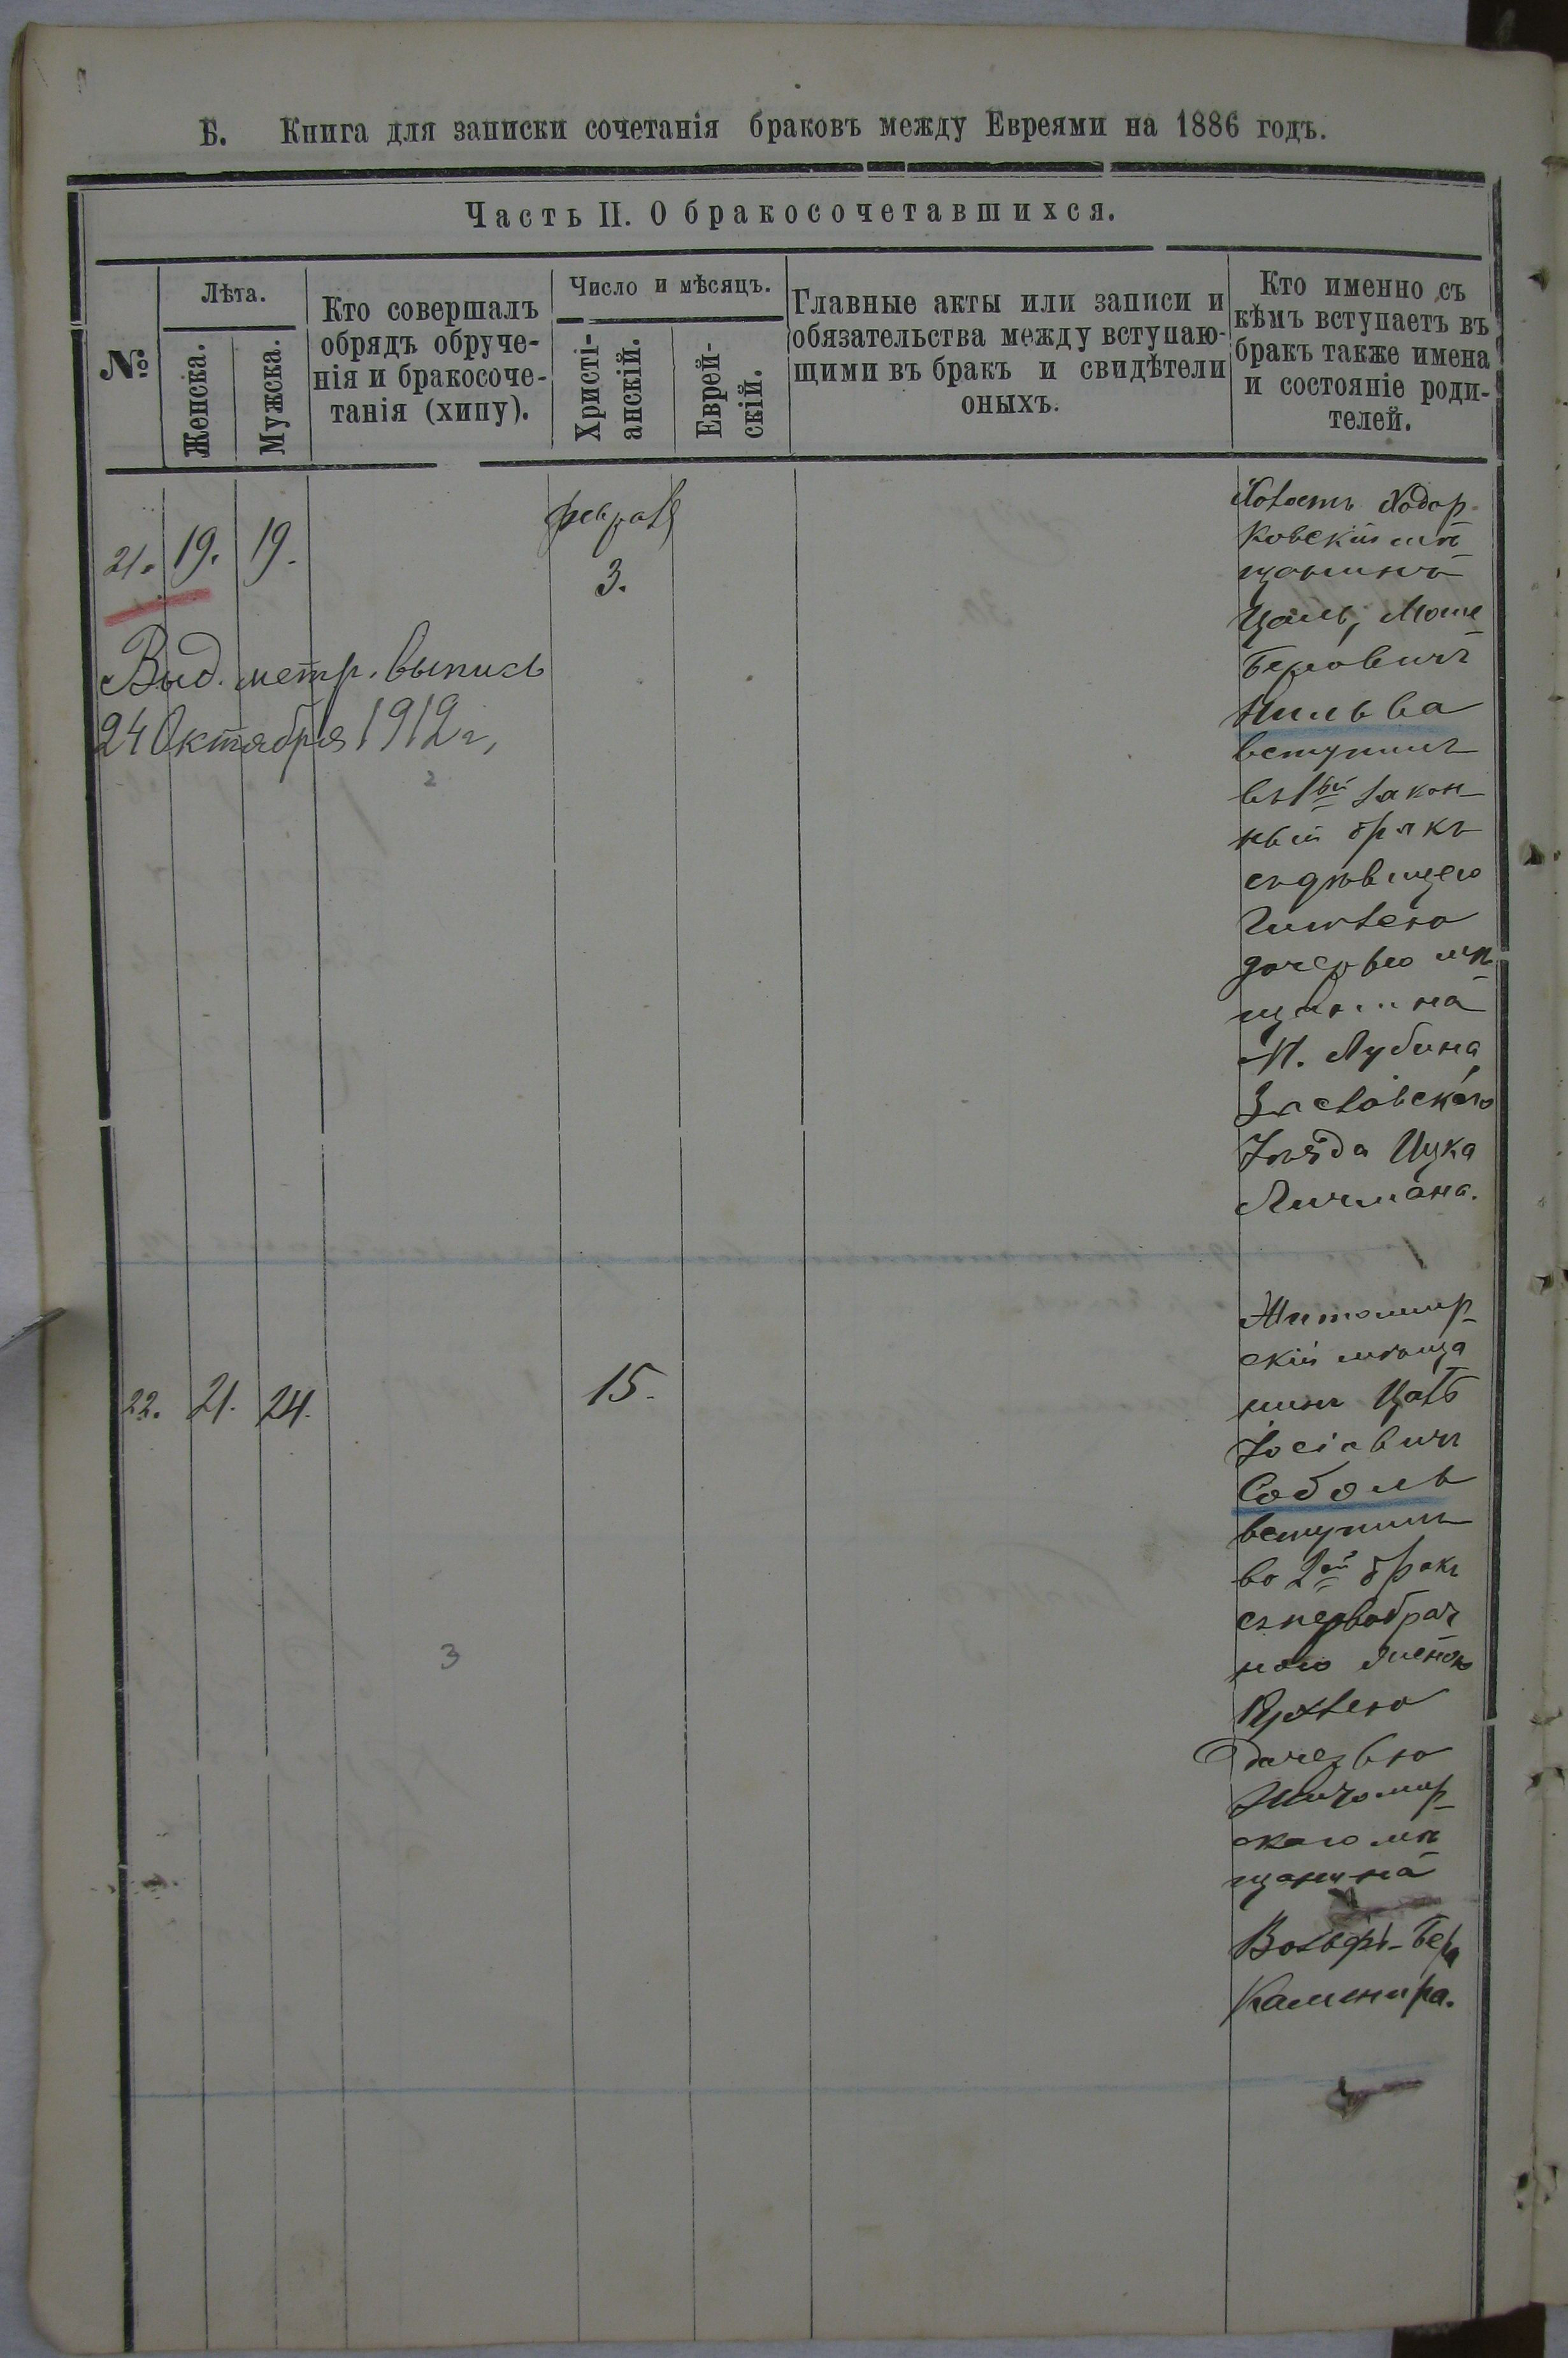 Б. Книга для записки сочетанія браковъ между Евреями на 1886 годъ.
Часть II. О бракосочетавшихся.
№
Лѣта.
Женска.
Мужска.
Кто совершалъ
обрядъ обруче-
нія и бракосоче-
танія (хипу).
Число и мѣсяцъ.
Христі-
анскій.
Еврей-
скій.
Главные акты или записи и
обязательства между вступаю-
щими въ бракъ и свидѣтели
оныхъ.
Кто именно съ
кѣмъ вступаетъ въ
бракъ также имена
и состояніе роди-
телей.
21. 19. 19.
февраля
3.
Холостъ Ходор-
ковскій мѣ-
щанинъ
Цаль, Моше
Беровичъ
Нильва
вступилъ
въ 1ый закон-
ный бракъ
съ дѣвицею
дочерью мѣ-
щанина
М. Лубина
Заславскаго
Уѣзда Ицка
Личмана.
Выд. метр. выпись
24 Октября 1912 г,
2
22. 21. 24.
15.
Житомир-
скій мѣща
нинъ Цаль
Іосіавичъ
Соболь
вступилъ
во 2ой бракъ
съ первобрач
ною женою
Рухлею
дочерью
Житомир-
скаго мѣ
щанина
Вольфъ-Бера
Каменира.
3